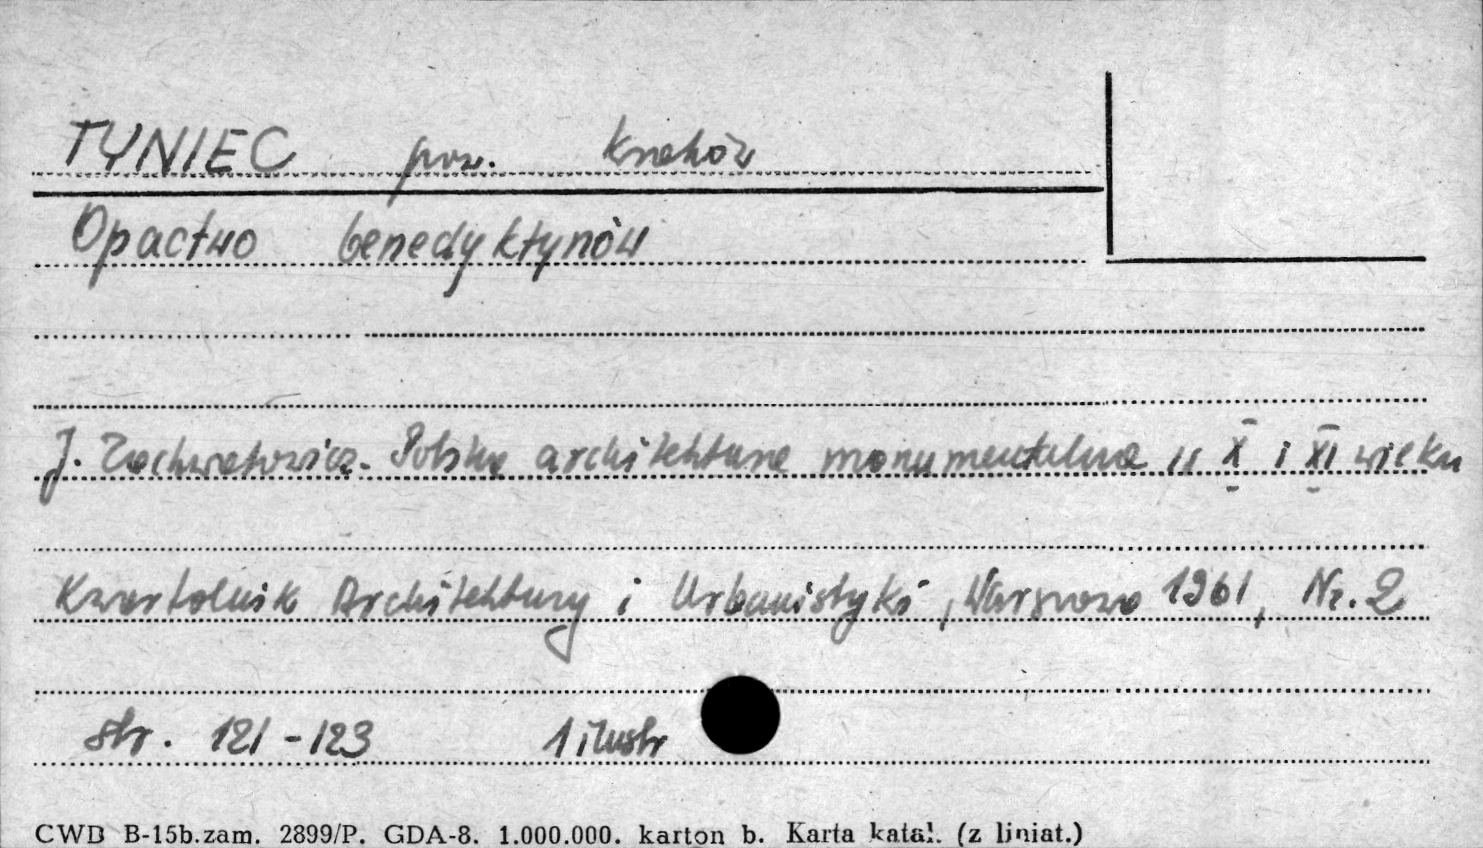 TYNIEC pow. Kraków
Opactwo benedyktynów
J. Zachwatowicz. Polska architektura monumentalna w X i XI wieku
Kwartalnik Architektury i Urbanistyki, Warszawa 1961, Nr. 2
str. 121-123 1 ilustr
CWD B-15b.zam. 2899/P. GDA-8. 1.000.000. karton b. Karta katal. (z liniat.)